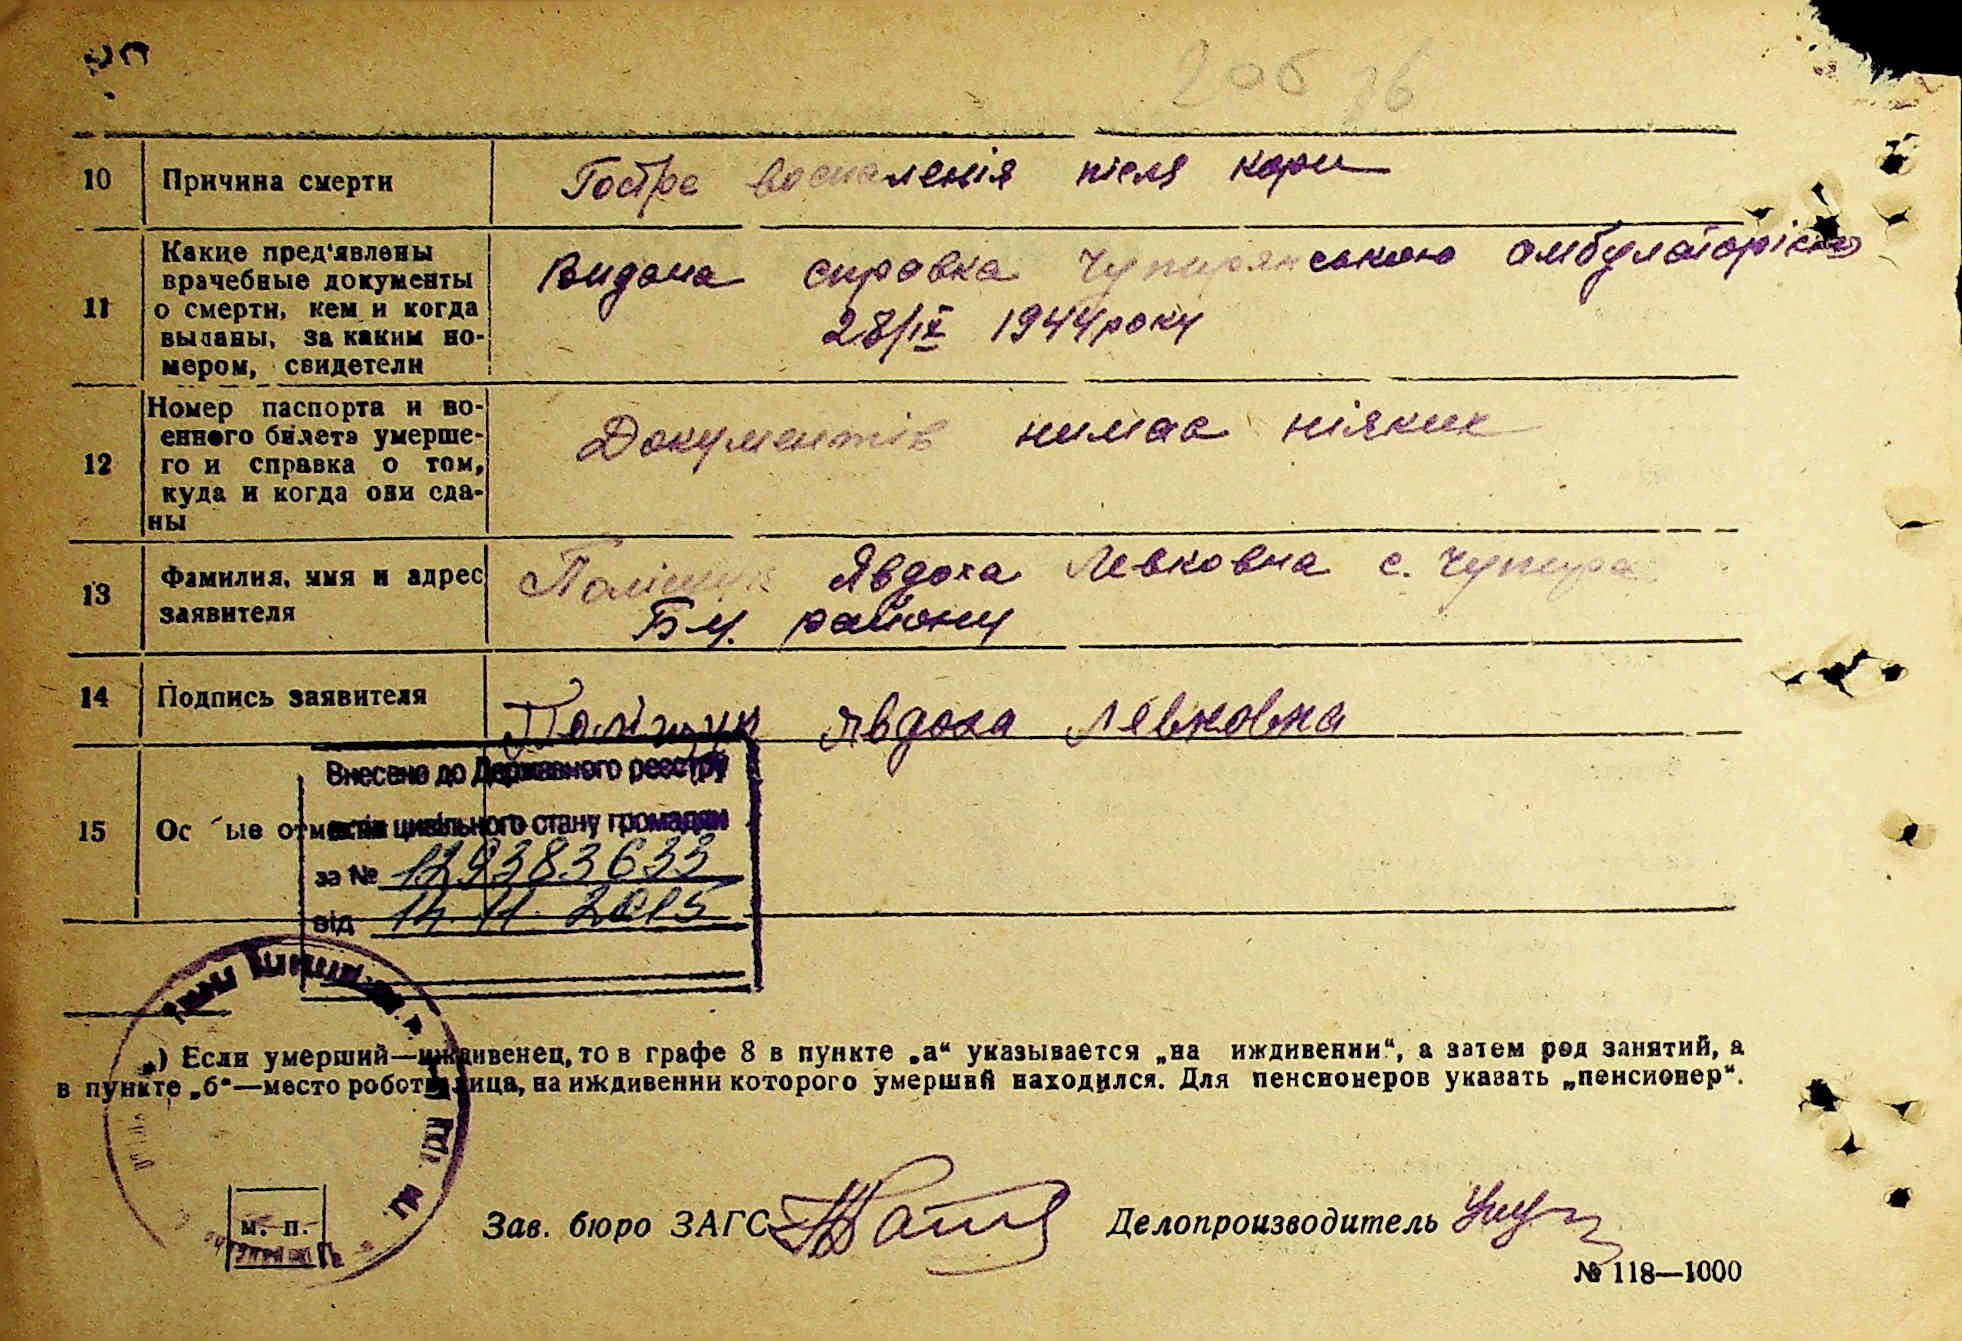 10 Причина смерти Гостре воспаленія після кори
11 Какие пред'явлены врачебные документы о смерти, кем и когда выданы, за каким но-мером, свидетели
Видана справка Чупирянською амбулаторією
28/IV 1944 року
12 Номер паспорта и во-
енного билета умерше-
го и справка о том,
куда и когда они сда-
ны
Документів нимає ніяких
13 Фамилия, имя и адрес
заявителя
Поліщук Явдоха Левковна с. Чупира
Бц. району
14 Подпись заявителя Поліщук Явдоха Лявковна
15 Ос ые отм
Внесено до Державного реєстру
актів цивільного стану громадян
за № 129383633
від 14.11.2015
) Если умерший—иждивенец, то в графе 8 в пункте „а“ указывается „на иждивении“, а затем род занятий, а
в пункте „б“—место работы лица, на иждивении которого умерший находился. Для пенсионеров указать „пенсионер“.
м. п.
Зав. бюро ЗАГС
Делопроизводитель
№ 118—1000